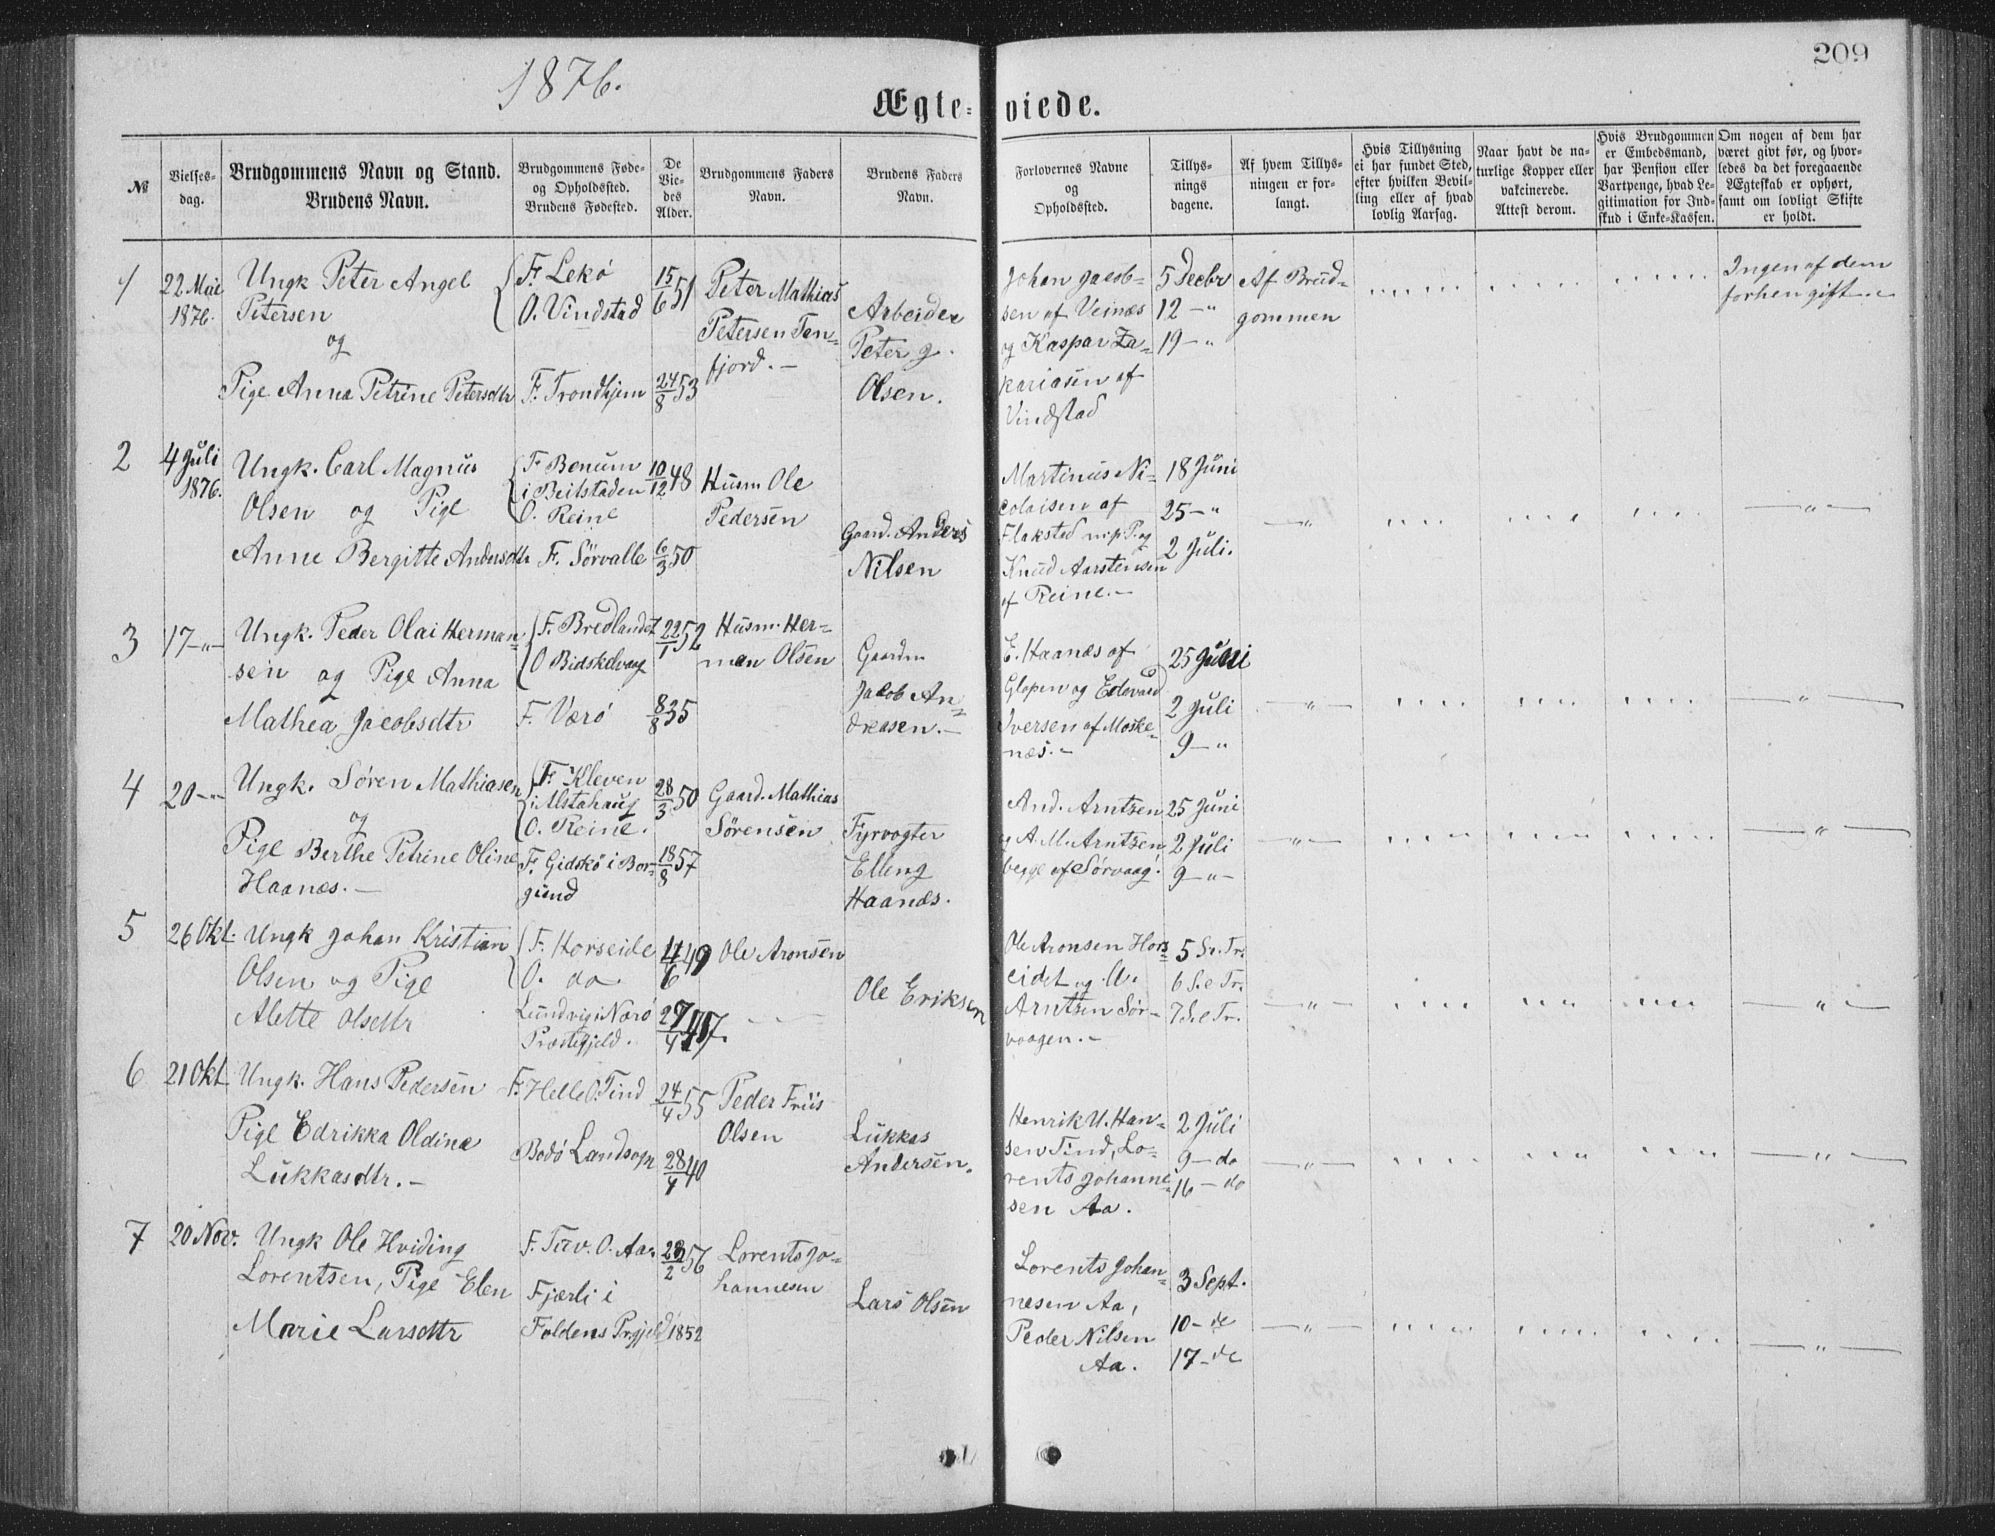 1876.
209
Ægte-
viede.
№
Vielses-
dag.
Brudgommens Navn og Stand.
Brudens Navn.
Brudgommens Føde-
og Opholdssted.
Brudens Fødested.
De
Vie-
des
Alder.
Brudgommens Faders
Navn.
Brudens Faders
Navn.
Forlovernes Navne
og
Opholdssted.
Tillys-
nings
dagene.
Af hvem Tillys-
ningen er for-
langt.
Hvis Tillysning
ei har fundet Sted,
efter hvilken Bevil-
ling eller af hvad
lovlig Aarsag.
Naar havt de na-
turlige Kopper eller
vakcinerede.
Attest derom.
Hvis Brudgommen
er Embedsmand,
har Pension eller
Vartpenge, hvad Le-
gitimation for Ind-
skud i Enke-Kassen.
Om nogen af dem har
været givt før, og hvor-
ledes da det foregaaende
Ægteskab er ophørt,
samt om lovligt Skifte
er holdt.
1
22 Mai
1876.
Ungk Peter Angel
Petersen
og
Pige Anna Petrine Petersdtr
F. Lekö
O. Vindstad
F. Trondhjem
15/6 51
24/8 53
Peter Mathias
Petersen Ten-
fjord. -
Arbeider
Peter J.
Olsen.
Johan Jacob-
sen af Veinæs
og Kaspar Za-
kariasen af
Vindstad
5 Decbr
12 - "
19 - "
Af Brud-
gommen
Ingen af dem
forhen gift. -
2
4 Juli
1876.
Ungk. Carl Magnus
Olsen og Pige
Anne Bergitte Andersdtr
F. Benum
i Beitstaden
O. Reine
F. Sörvalle
10/12 48
6/3 50
Husm Ole
Pedersen
Gaard. Anders
Nilsen
Martinus Ni-
colaisen af
Flakstad
Knud Aarstensen
af Reine. -
18 Juni
25 - "
2 Juli.
- " -
- " -
3
17 - " -
Ungk. Peder Olai Herman-
sen og Pige Anna
Mathea Jacobsdtr
F. Bredlandet
O Bidskelvaag
F. Værö
22/1 52
8/8 35
Husm. Her-
man Olsen
Gaardm
Jacob An-
dreasen. -
E. Haanæs af
Glopen og Edevard
Iversen af Moske-
næs. -
25 Juni
2 Juli
9 - "
- " -
- " -
4
20 - " -
Ungk. Sören Mathiasen
og
Pige Berthe Petrine Oline
Haanæs. -
F. Kleven
i Alstahaug
O. Reine.
F. Gidskö i Bor-
gund
28/3 50
18/8 57
Gaard. Mathias
Sörensen
Fyrvogter
Elling
Haanæs.
And. Arntzen
og A. M. Arntzen
begge af Sörvaag.
25 Juni
2 Juli
9 " -
- " -
- " -
5
26 Okt.
Ungk Johan Kristian
Olsen og Pige
Alette Olsdtr
F. Horseide
O. do
Lundvig i Nærö
Præstegjeld.
49
Ole Aronsen
Ole Eriksen
Ole Aronsen Hors-
eidet og A.
Arntzen Sör-
vaagen. -
5 S. e. Tr.
6 S. e Tr.
7 S. e Tr.
- " -
- " -
6
21 Okt
Ungk. Hans Pedersen
Pige Edrikka Oldine
Lukkasdtr. -
F. Helle O. Tind
Bodö Landsogn
24/4 55
28/4 40
Peder Friis
Olsen
Lukkas
Andersen.
Henrik U. Han-
sen Tind, Lo-
rents Johanne-
sen Aa.
2 Juli
9 - do
16 - do
- " -
- " -
7
20 Nov.
Ungk Ole Hviding
Lorentsen, Pige Elen
Marie Larsdtr
F. Tuv. O. Aa.
Fjærli i
Foldens Prgjeld
56
1852
Lorents Jo-
hannesen
Lars Olsen
Lorents Johan-
nesen Aa,
Peder Nilsen
Aa.
3 Sept.
10 - do
17 - do
- " -
- " -